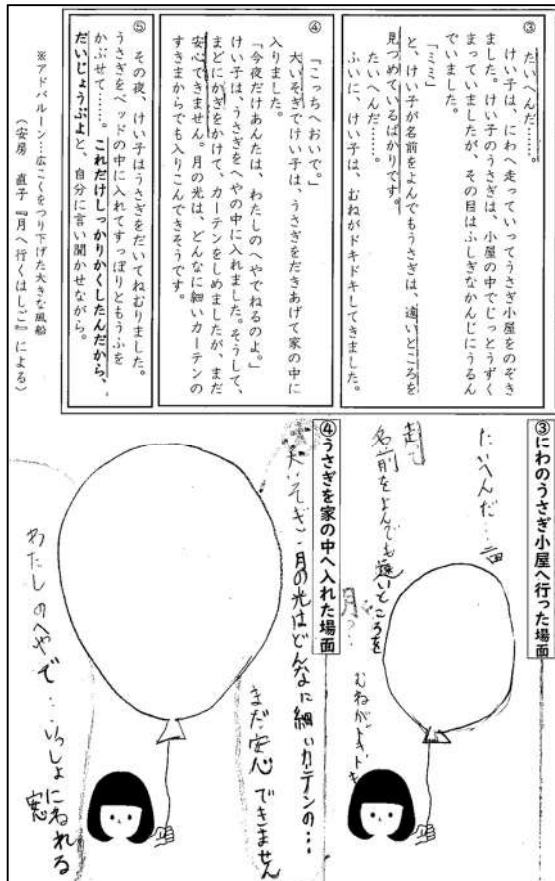 ③
たいへんだ……。
けい子は、にわへ走っていってうさぎ小屋をのぞき
ました。けい子のうさぎは、小屋の中でじっとうずく
まっていましたが、その目はふしぎなかんじにうるん
でいました。
「ミミ」
と、けい子が名前をよんでもうさぎは、遠いところを
見つめているばかりです。
たいへんだ……。
ふいに、けい子は、むねがドキドキしてきました。
④
「こっちへおいで。」
大いそぎでけい子は、うさぎをだきあげて家の中に
入りました。
「今夜だけあんたは、わたしのへやでねるのよ。」
けい子は、うさぎをへやの中に入れました。そうして、
まどにかぎをかけて、カーテンをしめましたが、まだ
安心できません。月の光は、どんなに細いカーテンの
すきまからでも入りこんできそうです。
⑤
その夜、けい子はうさぎをだいてねむりました。
うさぎをベッドの中に入れてすっぽりともうふを
かぶせて……。これだけしっかりかくしたんだから、
だいじょうぶよと、自分に言い聞かせながら。
※アドバルーン…広こくをつり下げた大きな風船
(安房 直子『月へ行くはしご』による)
③にわのうさぎ小屋へ行った場面
たいへんだ…
走って
名前をよんでも遠いところを
月?
むねがドキドキ
④うさぎを家の中へ入れた場面
大いそぎ
月の光はどんなに細いカーテンの…
まだ安心できません
わたしのへやで…いっしょにねれる
窓